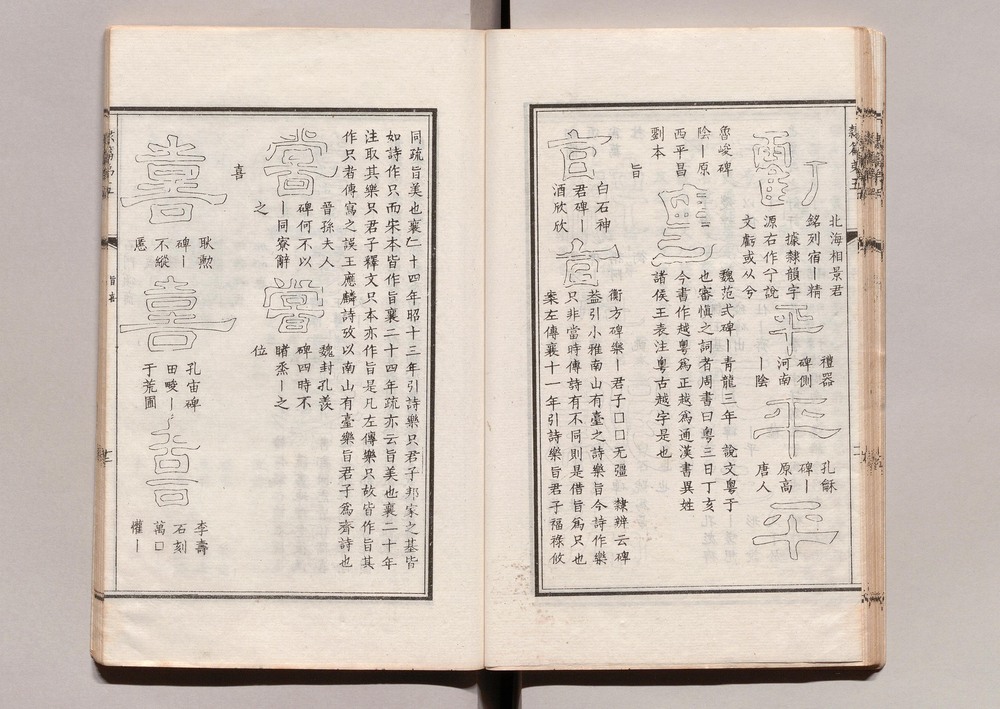 北海相景君
銘列宿丨精
據隸韻字
源右作亏說
文虧或从兮
平
禮器
碑側
河南
丨陰
平
孔龢
碑丨
原高
唐人
平
魯峻碑
陰丨原
西平昌
劉本
魏范式碑丨青龍三年 說文粵于
也審愼之詞者周書曰粵三日丁亥
今書作越粵爲正越爲通漢書異姓
諸侯王表注粵古越字是也
旨
白石神
君碑丨
酒欣欣
衡方碑樂丨君子□□无彊 隸辨云碑
葢引小雅南山有臺之詩樂旨今詩作樂
只非當時傳詩有不同則是借旨爲只也
案左傳襄十一年引詩樂旨君子福祿攸
同疏旨美也襄二十四年昭十三年引詩樂只君子邦家之基皆
如詩作只而宋本皆作旨襄二十四年疏亦云旨美也襄二十年
注取其樂只君子釋文只本亦作旨是凡左傳樂只故皆作旨其
作只者傳寫之誤王應麟詩攷以南山有臺樂旨君子爲齊詩也
晉孫夫人
碑何不以
丨同寮辭
之
魏封孔羨
碑四時不
睹烝丨之
位
喜
喜
耿勳
碑丨
不縱
慝
喜
孔宙碑
田畯丨
于荒圃
李壽
石刻
萬□
懽丨
旨喜